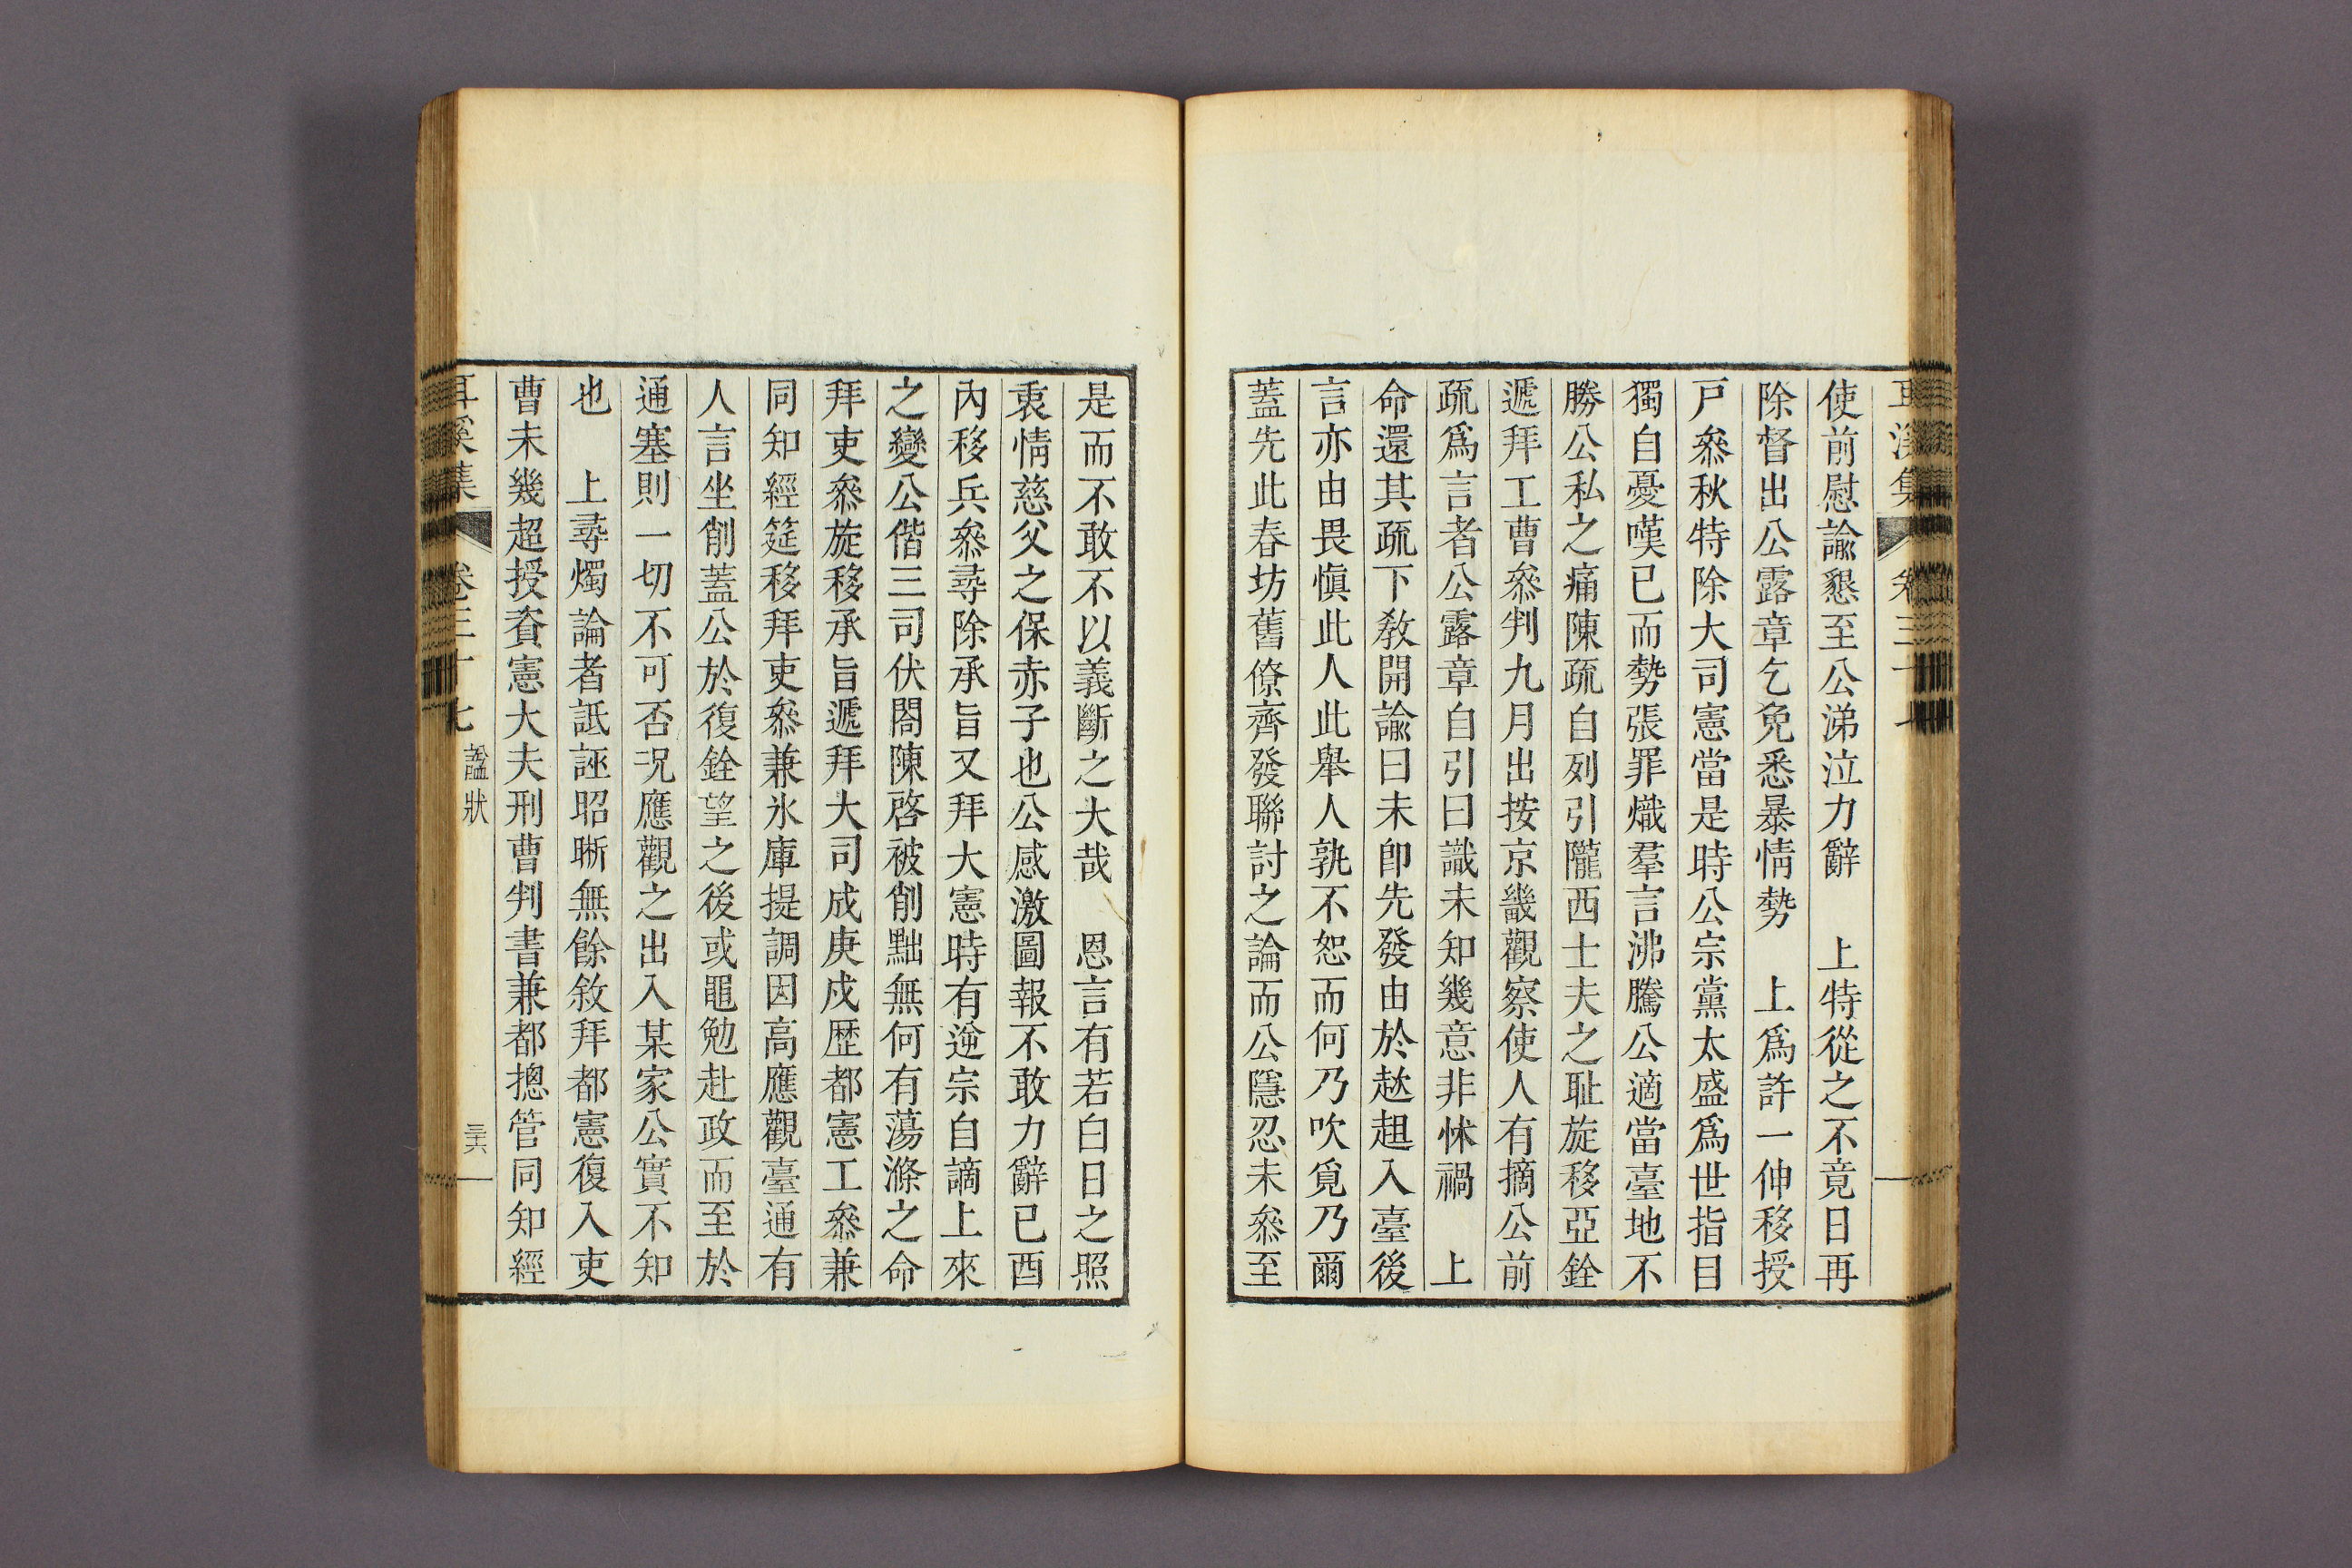 耳溪集 卷三十七
使前慰諭懇至公涕泣力辭 上特從之不竟日再
除督出公露章乞免悉暴情勢 上爲許一伸移授
戶叅秋特除大司憲當是時公宗黨太盛爲世指目
獨自憂嘆已而勢張罪熾羣言沸騰公適當臺地不
勝公私之痛陳疏自列引隴西士夫之耻旋移亞銓
遞拜工曹叅判九月出按京畿觀察使人有摘公前
疏爲言者公露章自引曰識未知幾意非怵禍 上
命還其疏下敎開諭曰未卽先發由於趑趄入臺後
言亦由畏愼此人此舉人孰不恕而何乃吹覓乃爾
蓋先此春坊舊僚齊發聯討之論而公隱忍未叅至
是而不敢不以義斷之大哉 恩言有若白日之照
衷情慈父之保赤子也公感激圖報不敢力辭已酉
內移兵叅尋除承旨又拜大憲時有逆宗自謫上來
之變公偕三司伏閤陳啓被削黜無何有蕩滌之命
拜吏叅旋移承旨遞拜大司成庚戌歷都憲工叅兼
同知經筵移拜吏叅兼氷庫提調因高應觀臺通有
人言坐削蓋公於復銓望之後或黽勉赴政而至於
通塞則一切不可否况應觀之出入某家公實不知
也 上尋燭論者詆誣昭晰無餘敘拜都憲復入吏
曹未幾超授資憲大夫刑曹判書兼都摠管同知經
耳溪集 卷三十七 謚狀 三十六